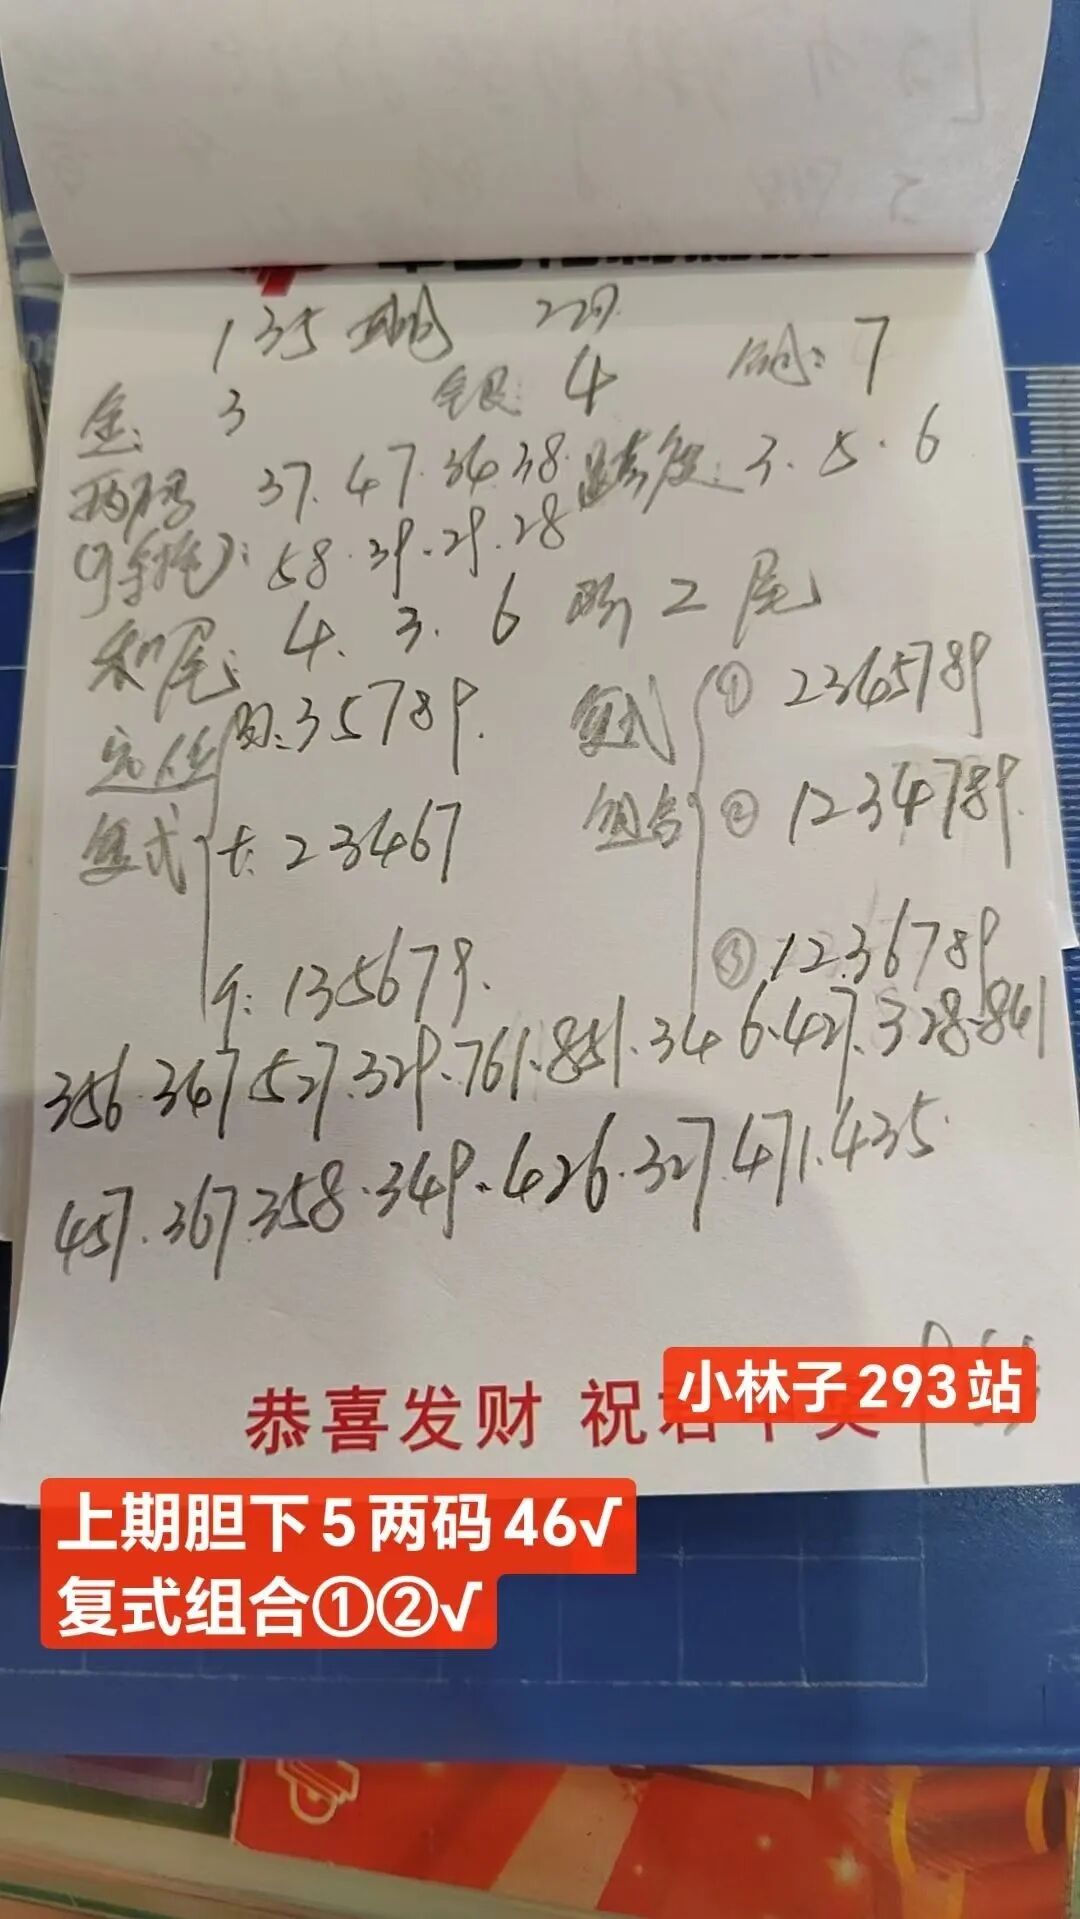 135期 227.
金: 3 银: 4 铜: 7
两码 37. 47. 34 38. 跨度: 3. 5. 6
58. 39. 29. 28
和尾: 4. 3. 6 防 2 尾
定位 百: 35789. 复式 ① 2365789
复式 十: 23467 组合 ② 1234789.
个: 135679. ③ 1236789
356. 347. 527. 329. 761. 851. 346. 427. 328. 841
457. 367. 358. 349. 426. 327. 471. 435.
小林子293站
恭喜发财 祝
上期胆下5两码46√
复式组合①②√